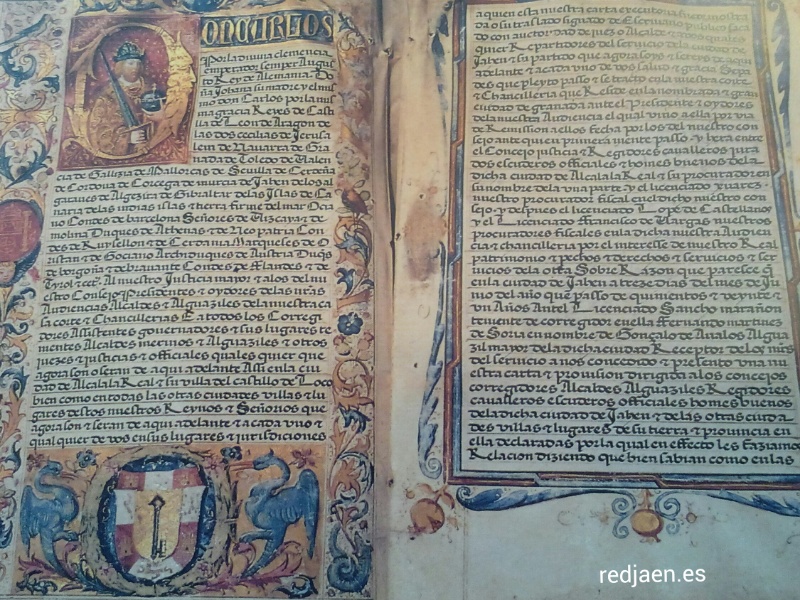 ON CARLOS
Por la diuina clemencia
emperador semper Augus
to Rey de Alemania. Do
ña Johana su madre y el mis
mo don Carlos por la mis
ma gracia Reyes de Casti
lla de Leon de Aragon de
las dos cecilias de Jerusa
lem de Nauarra de Gra
nada de Toledo de Valen
cia de Gallizia de Mallorcas de Seuilla de Cerdeña
de Cordoua de Corcega de murcia de Jahen de los al
garaues de Algezira de Gibraltar de las Islas de Ca
naria de las indias islas & tierra firme del mar Oce
ano Condes de barcelona Señores de Vizcaya & de
molina Duques de Athenas & de Neopatria Con
des de Ruysellon & de Cerdania Marqueses de O
ristan & de Gociano Archiduques de Austria Duqs
de borgoña & de brauante Condes de Flandes & de
Tyrol & cet. Al nuestro Justicia mayor & a los del nu
estro Consejo Presidentes & oydores de las nras
Audiencias Alcaldes & Alguaziles de la nuestra ca
sa corte & Chancillerias E a todos los Corregi
dores Assistentes gouernadores & sus lugares te
nientes Alcaldes merinos & Alguaziles & otros
juezes & justicias & officiales quales quier que
agora son o seran de aqui adelante Assi en la ciu
dad de Alcala la Real & su villa del castillo de Loco
bien como en todas las otras ciudades villas & lu
gares destos nuestros Reynos & Señorios que
agora son & seran de aqui adelante & a cada vno &
qual quier de vos en sus lugares & jurisdiciones
a quien esta nuestra carta executoria fuere mostra
da o su traslado signado de Escriuano publico saca
do con auctoridad de juez o Alcalde
quier Repartidores del seruicio de la ciudad de
Jahen & su partido que agora soys & sereys de aqui
adelante & a cada vno de vos salud & gracia Sepa
des que pleyto passo & se tracto en la nuestra corte
& Chancilleria que Reside en la nombrada & gran
ciudad de granada ante el Presidente & oydores
de la nuestra Audiencia el qual vino a ella por via
de Remission a ellos fecha por los del nuestro con
sejo ante quien primera mente passo y hera entre
el Concejo justicia & Regidores caualleros jura
dos escuderos officiales & homes buenos de la
dicha ciudad de Alcala la Real & su procurador en
su nombre de la vna parte y el licenciado xuarez
nuestro procurador fiscal en el dicho nuestro con
sejo y despues el licenciado Lope de Castellano
y el Licenciado Francisco de Vargas nuestros
procuradores fiscales en la dicha nuestra Audien
cia & chancilleria por el interesse de nuestro Real
patrimonio & pechos & derechos & seruicios & ser
uicios de la otra Sobre Razon que paresce q̃
en la ciudad de Jahen a treze dias del mes de Ju
nio del año que passo de quinientos & veynte &
vn Años Ante L Licenciado Sancho marañon
teniente de corregidor en ella Ffernando martinez
de Soria en nombre de Gonçalo de Analos Algua
zil mayor de la dicha ciudad Receptor de los mrs̃
del seruicio a nos concedido & presento vna nu
estra carta & prouision dirigida a los concejos
corregidores Alcaldes Alguaziles Regidores
caualleros escuderos officiales homes buenos
de la dicha ciudad de Jahen & de las otras ciuda
des villas & lugares de su tierra & prouincia en
ella declaradas por la qual en effecto les faziamos
Relacion diziendo que bien sabian como en las
redjaen.es